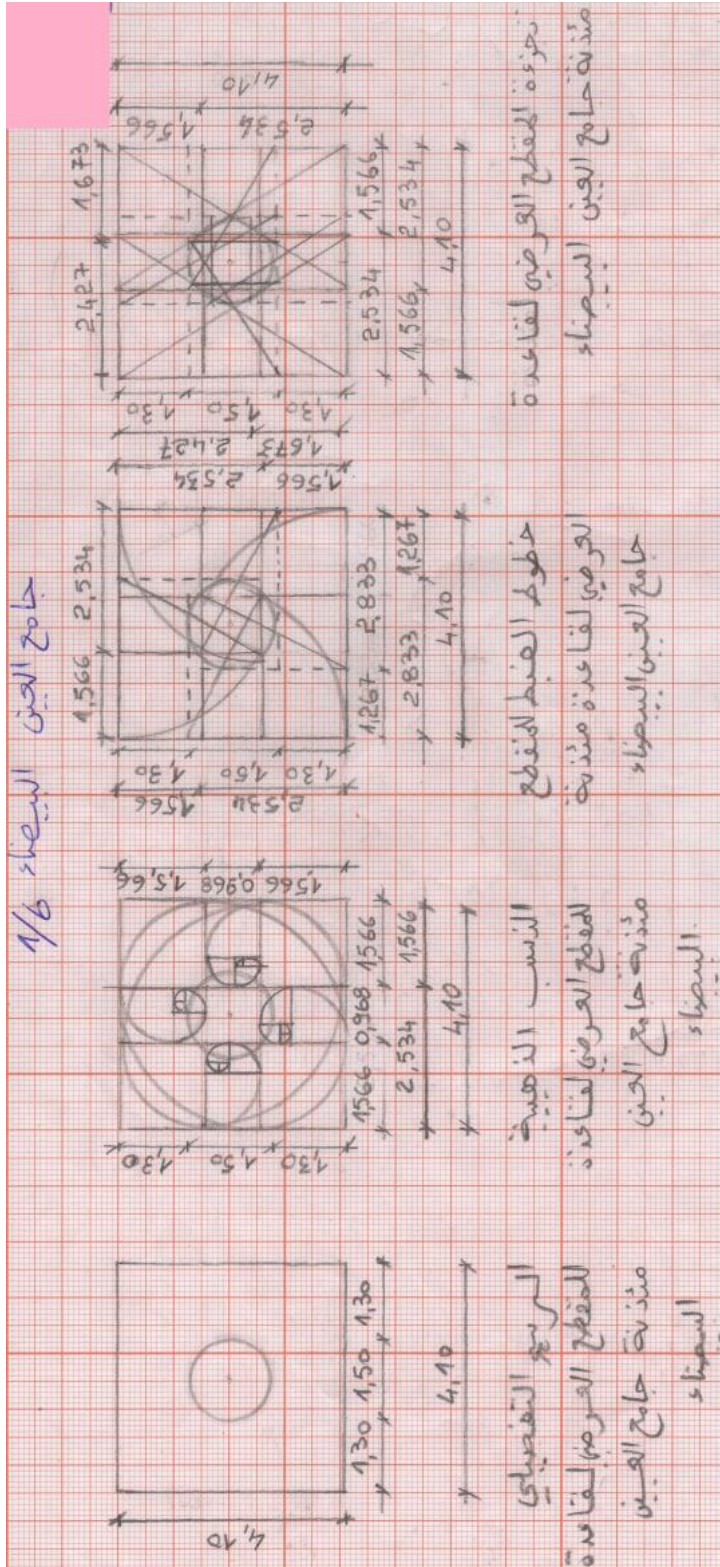 1/6 جامع العين البيضاء
4,10
1,30 1,50 1,30
4,10
الرسم التفصيلي
للمقطع العرضي لقاعدة
مئذنة جامع العين
البيضاء
1,30 1,50 1,30
1,5,66 0,968 1566
1,566 0,968 1,566
2,534 1,566
4,10
النسب الذهبية
للمقطع العرضي لقاعدة
مئذنة جامع العين
البيضاء.
1,566 2,534
1,30 1,50 1,30
1566 2,534
1,267 2,833
2,833 1,267
4,10
خطوط الضبط للمقطع
العرضي لقاعدة مئذنة
جامع العين البيضاء
2,427 1,673
1,30 1,50 1,30
2,427 1,673
2,534 1,566
1,566 2,534
4,10
2,534 1,566
1,566 2,534
4,10
تجزءة المقطع العرضي لقاعدة
مئذنة جامع العين البيضاء